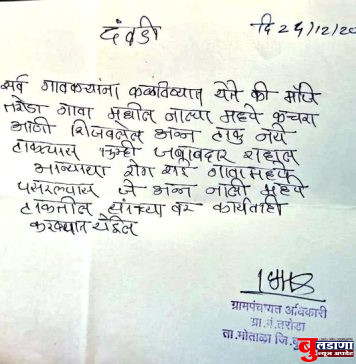 दवंडी
दि 24/12/20
सर्व गावकऱ्यांना कळविण्यात येते की मौजे
तरोडा गावा मधील नाल्या मध्ये कचरा
आणी शिजवलेल अन्न टाकु नये
टाकल्यास तुम्ही जबाबदार राहाल
रोग राई गावा मध्ये
पसरल्यास जे अन्न नाली मध्ये
टाकतील यांच्या वर कार्यवाही
करण्यात येईल
ग्रामपंचायत अधिकारी
ग्रा.पं.तरोडा
ता.मोताळा जि.बु
बुलडाणा